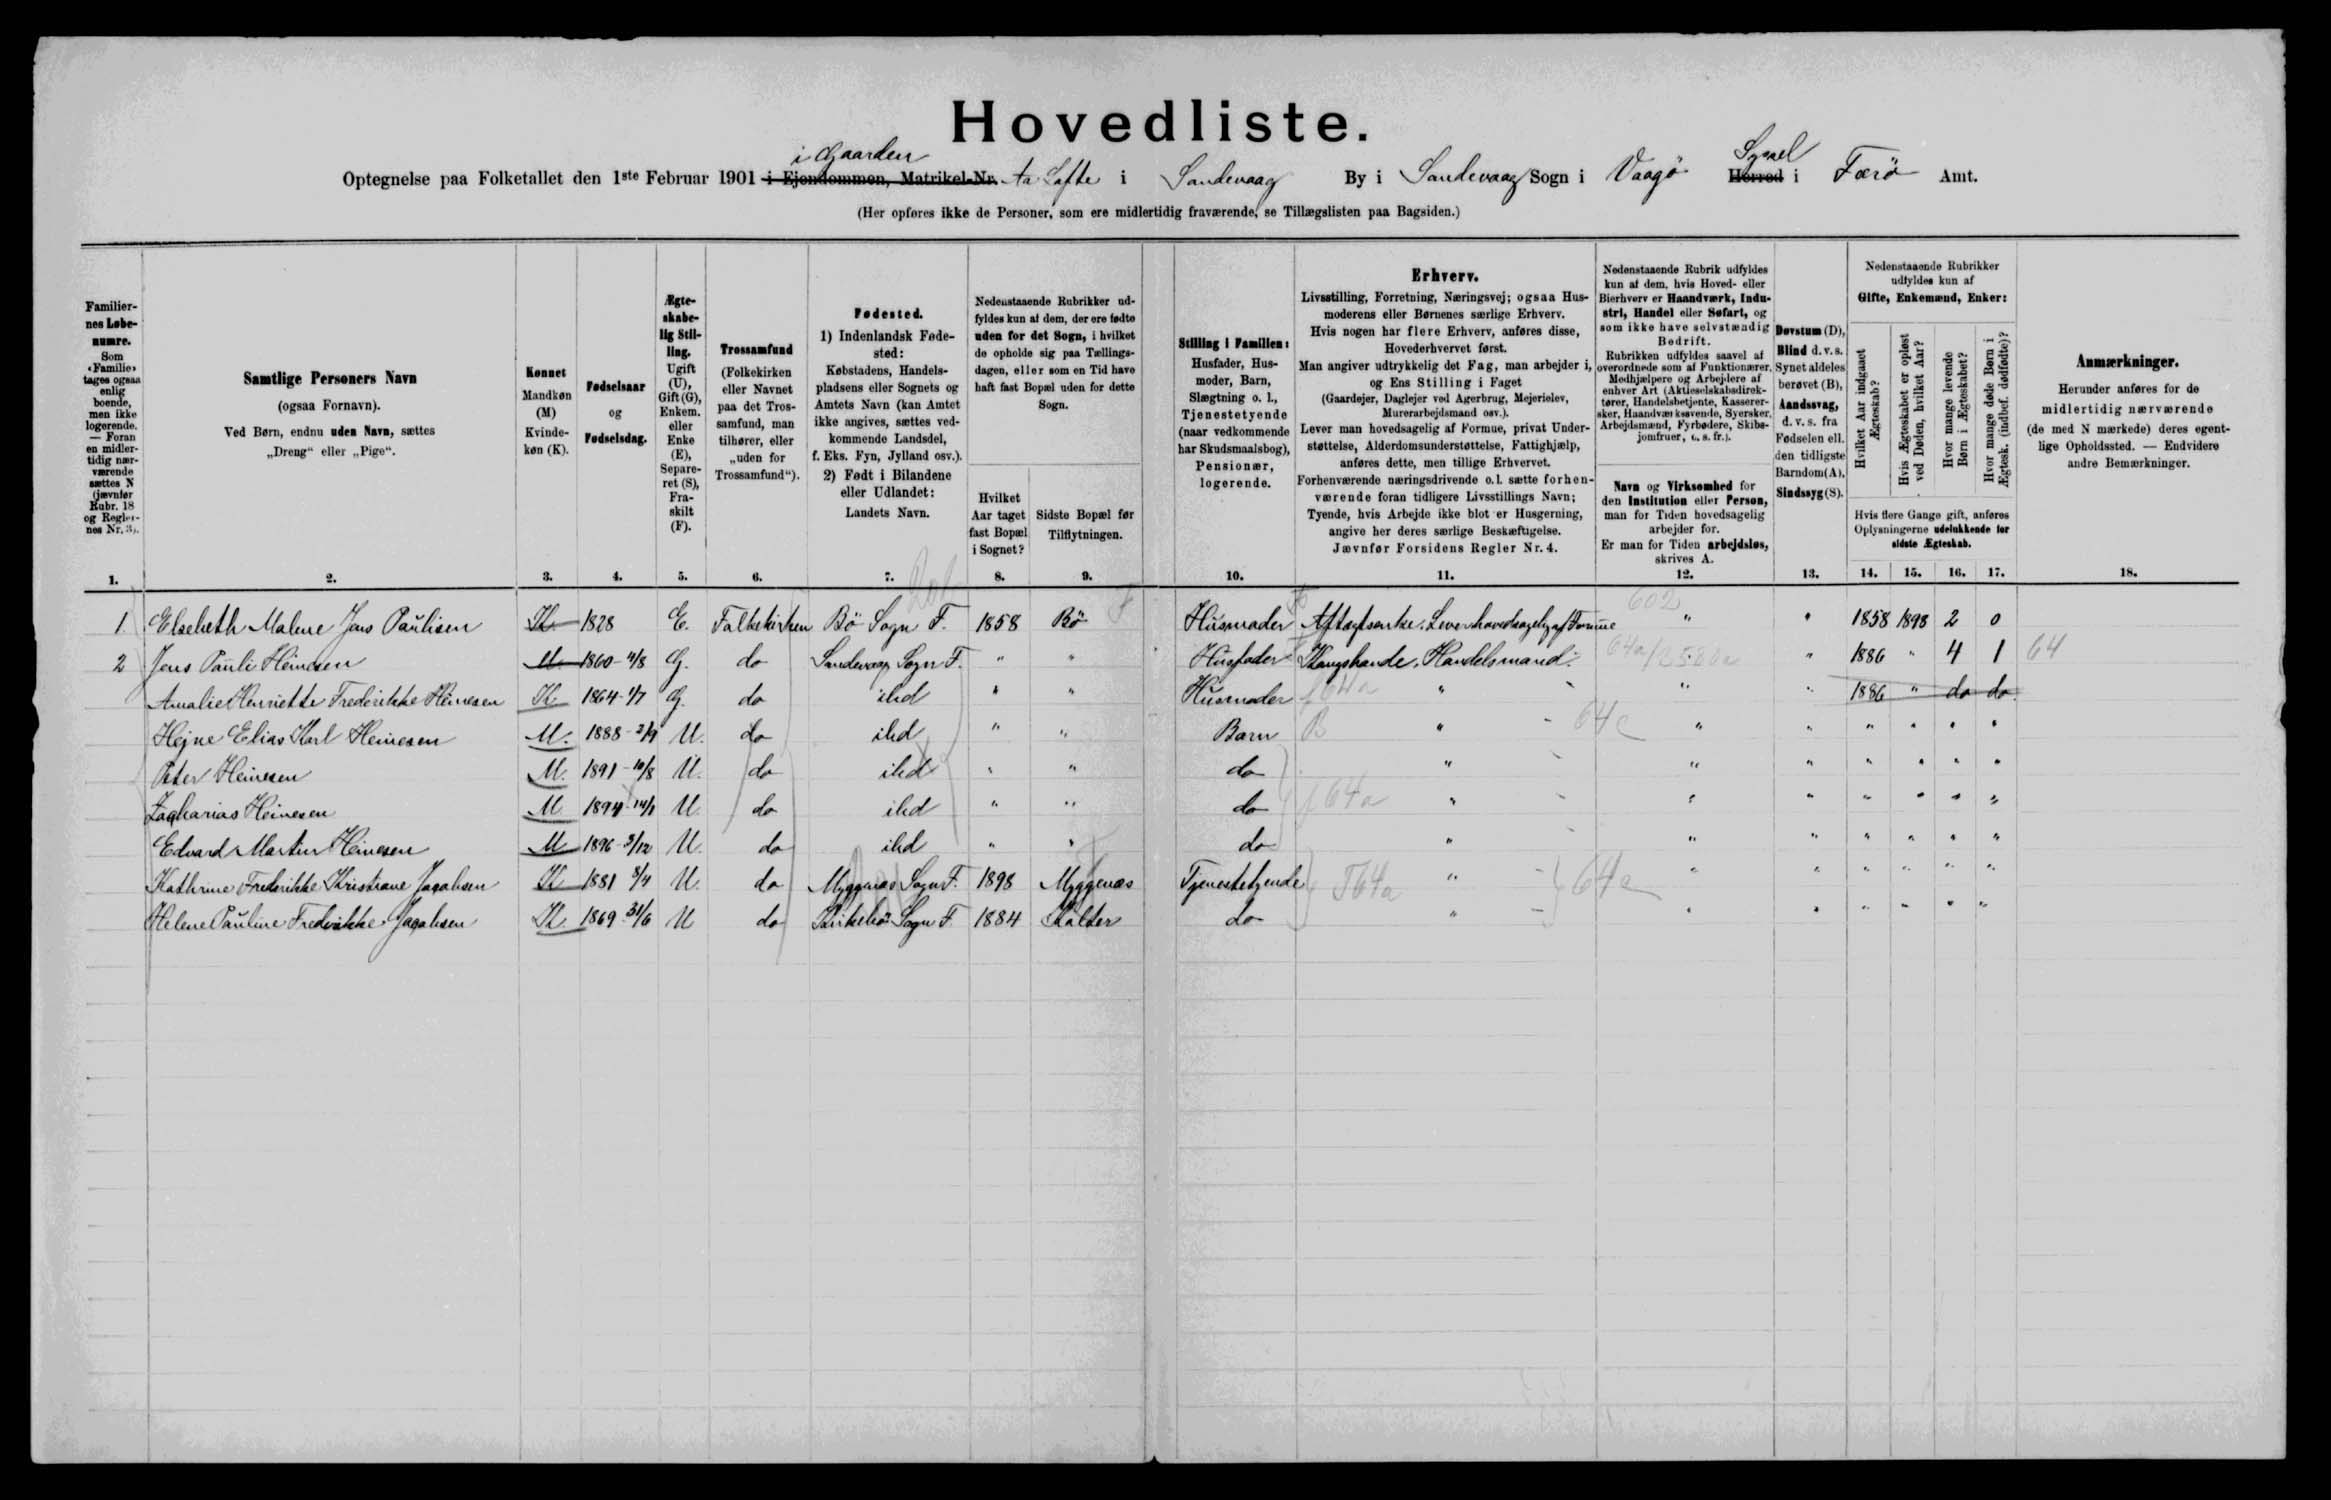 Hovedliste.
i Gaarden Syssel
Optegnelse paa Folketallet den 1ste Februar 1901 i Ejendommen, Matrikel-Nr. Aa Lofte i Sandevaag By i Sandevaag Sogn i Vaagö Herred i Færö Amt.
(Her opføres ikke de Personer, som ere midlertidig fraværende, se Tillægslisten paa Bagsiden.)
Familiernes Løbenumre.
Som «Familie» tages ogsaa enlig boende, men ikke logerende. — Foran en midlertidig nærværende sættes N (jævnfør Rubr. 18 og Reglernes Nr. 3).
1.
Samtlige Personers Navn
(ogsaa Fornavn).
Ved Børn, endnu uden Navn, sættes
„Dreng“ eller „Pige“.
2.
Kønnet
Mandkøn (M)
Kvindekøn (K).
3.
Fødselsaar
og
Fødselsdag.
4.
Ægteskabelig Stilling.
Ugift (U), Gift (G), Enkem. eller Enke (E), Separeret (S), Fraskilt (F).
5.
Trossamfund
(Folkekirken eller Navnet paa det Trossamfund, man tilhører, eller „uden for Trossamfund“).
6.
Fødested.
1) Indenlandsk Fødested:
Købstadens, Handelspladsens eller Sognets og Amtets Navn (kan Amtet ikke angives, sættes vedkommende Landsdel, f. Eks. Fyn, Jylland osv.).
2) Født i Bilandene eller Udlandet:
Landets Navn.
7.
Nedenstaaende Rubrikker udfyldes kun af dem, der ere fødte uden for det Sogn, i hvilket de opholde sig paa Tællingsdagen, eller som en Tid have haft fast Bopæl uden for dette Sogn.
Hvilket Aar taget fast Bopæl i Sognet?
8.
Sidste Bopæl før Tilflytningen.
9.
Stilling i Familien:
Husfader, Husmoder, Barn, Slægtning o. l., Tjenestetyende (naar vedkommende har Skudsmaalsbog), Pensionær, logerende.
10.
Erhverv.
Livsstilling, Forretning, Næringsvej; ogsaa Husmoderens eller Børnenes særlige Erhverv.
Hvis nogen har flere Erhverv, anføres disse, Hovederhvervet først.
Man angiver udtrykkelig det Fag, man arbejder i, og Ens Stilling i Faget
(Gaardejer, Daglejer ved Agerbrug, Mejerielev, Murerarbejdsmand osv.).
Lever man hovedsagelig af Formue, privat Understøttelse, Alderdomsunderstøttelse, Fattighjælp, anføres dette, men tillige Erhvervet.
Forhenværende næringsdrivende o. l. sætte forhenværende foran tidligere Livsstillings Navn;
Tyende, hvis Arbejde ikke blot er Husgerning, angive her deres særlige Beskæftigelse.
Jævnfør Forsidens Regler Nr. 4.
11.
Nedenstaaende Rubrik udfyldes kun af dem, hvis Hoved- eller Bierhverv er Haandværk, Industri, Handel eller Søfart, og som ikke have selvstændig Bedrift.
Rubrikken udfyldes saavel af overordnede som af Funktionærer, Medhjælpere og Arbejdere af enhver Art (Aktieselskabsdirektører, Handelsbetjente, Kasserersker, Haandværkssvende, Syersker, Arbejdsmænd, Fyrbødere, Skibsjomfruer, o. s. fr.).
Navn og Virksomhed for den Institution eller Person, man for Tiden hovedsagelig arbejder for.
Er man for Tiden arbejdsløs, skrives A.
12.
Døvstum (D), Blind d. v. s. Synet aldeles berøvet (B), Aandssvag, d. v. s. fra Fødselen ell. den tidligste Barndom (A), Sindssyg (S).
13.
Nedenstaaende Rubrikker udfyldes kun af
Gifte, Enkemænd, Enker:
Hvilket Aar indgaaet Ægteskab?
Hvis Ægteskabet er opløst ved Døden, hvilket Aar?
Hvor mange levende Børn i Ægteskabet?
Hvor mange døde Børn i Ægtesk. (indbef. dødfødte)?
Hvis flere Gange gift, anføres Oplysningerne udelukkende for sidste Ægteskab.
14. 15. 16. 17.
Anmærkninger.
Herunder anføres for de midlertidig nærværende (de med N mærkede) deres egentlige Opholdssted. — Endvidere andre Bemærkninger.
18.
1. Elsebeth Malene Jens Paulisen K. 1828 E. Folkekirken Bö Sogn F. 1858 Bö Husmoder Aftægtsenke. Lever hovedsagelig af Formue 602 " " 1858 1898 2 0
2 Jens Pauli Heinesen M. 1860 - 4/8 G. do Sandevaag Sogn F. " " Husfader Kongsbonde. Handelsmand. 64a " 1886 " 4 1 64
Amalie Henriette Frederikke Heinesen K. 1864 - 1/7 G. do ibd " " Husmoder 64a " " " 1886 " do do
Hejne Elias Karl Heinesen M. 1888 - 2/9 U. do ibd " " Barn B " 64c " " " " " "
Peter Heinesen M. 1891 - 10/8 U. do ibd " " do " " " " " " "
Zacharias Heinesen M 1894 - 14/1 U. do ibd " " do 64a " " " " " " "
Edvard Martin Heinesen M 1896 - 3/12 U. do ibd " " do " " " " " " "
Kathrine Frederikke Kristiane Jacobsen K 1881 3/4 U. do Myggenæs Sogn F. 1898 Myggenæs Tjenestetyende T64a " 64c " " " " " "
Helene Pauline Frederikke Jacobsen K. 1869 31/6 U do Kirkebö Sogn F 1884 Kolter do " " " " " " "